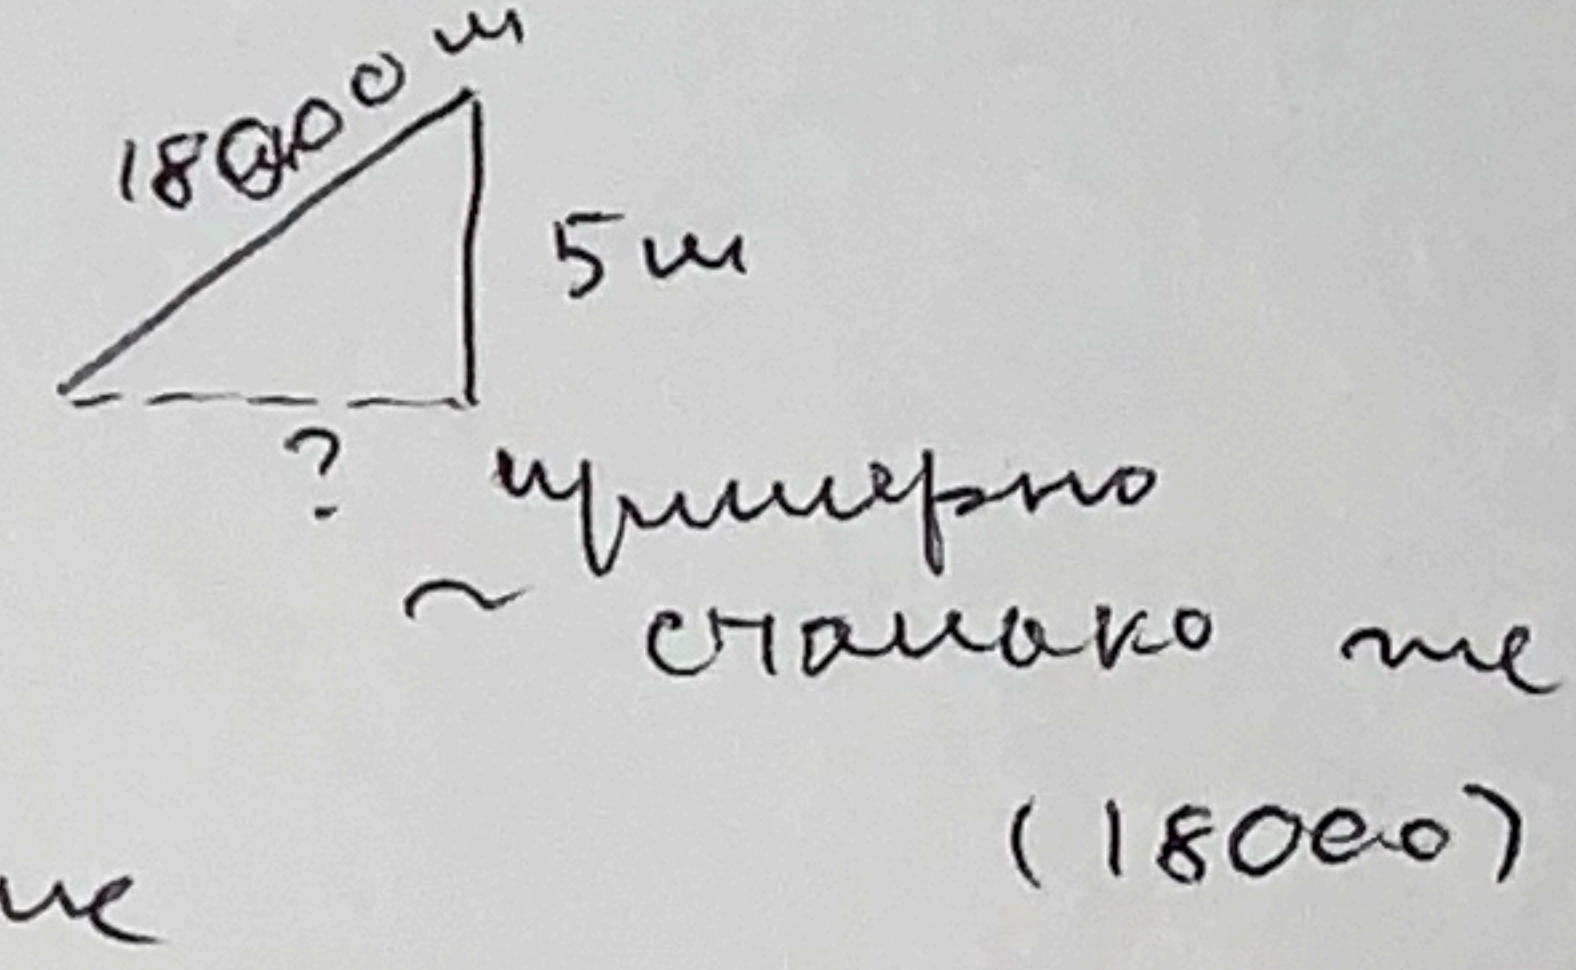 18000 м
5 м
?
примерно
~ столько же
(18000)